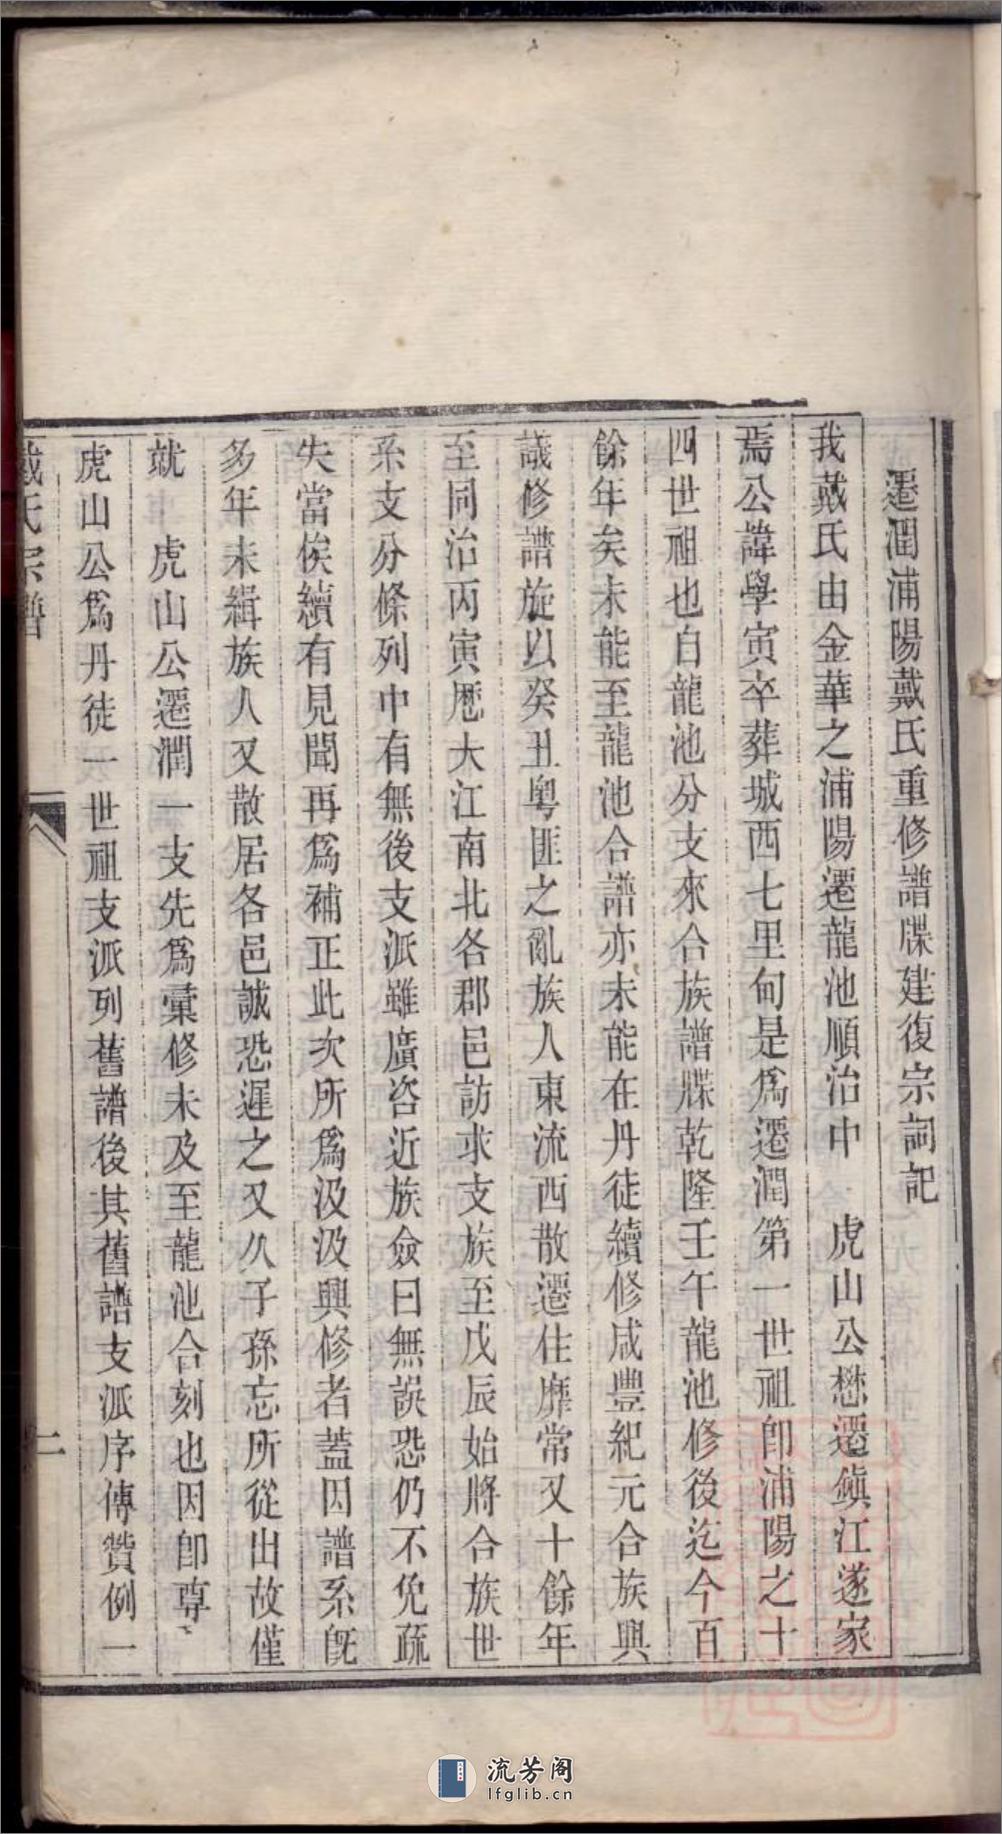 遷潤浦陽戴氏重修譜牒建復宗祠記
我戴氏由金華之浦陽遷龍池順治中　虎山公懋遷鎮江遂家
焉公諱學寅卒葬城西七里甸是爲遷潤第一世祖卽浦陽之十
四世祖也自龍池分支來合族譜牒乾隆壬午龍池修後迄今百
餘年矣未能至龍池合譜亦未能在丹徒續修咸豐紀元合族興
議修譜旋以癸丑粤匪之亂族人東流西散遷住靡常又十餘年
至同治丙寅歴大江南北各郡邑訪求支族至戊辰始將合族世
系支分條列中有無後支派雖廣咨近族僉曰無誤恐仍不免疏
失當俟續有見聞再爲補正此次所爲汲汲興修者蓋因譜系旣
多年未緝族人又散居各邑誠恐遲之又久子孫忘所從出故僅
就　虎山公遷潤一支先爲彙修未及至龍池合刻也因卽尊
虎山公爲丹徒一世祖支派列舊譜後其舊譜支派序傳贊例一
戴氏宗譜
二
流芳阁
lfglib.cn